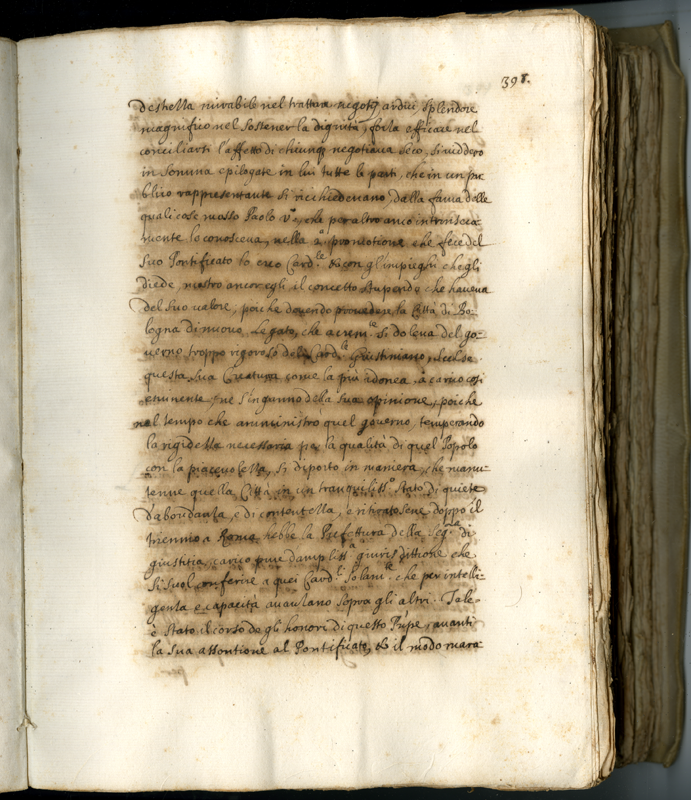 391.
destrezza mirabile nel trattar negotij ardui, splendore
magnifico nel sostener la dignità, forza efficace nel
conciliarsi l'affetto di chiunq; negotiava seco, si viddero
in somma epilogate in lui tutte le parti, che in un pu
blico rappresentante si ricchiedevano, dalla fama delle
quali cose mosso Paolo V.º, che per altro anco intrinseca
mente lo conosceva, nella 2.ª promotione, che fece del
suo Pontificato lo creò Card.le & con gl'impieghi che gli
diede, mostrò ancor egli il concetto stupendo che haveva
del suo valore, poiche dovendo provedere la Città di Bo-
logna di nuovo Legato, che acerm.te si doleva del go-
verno troppo rigoroso del Card.le Giustiniano, elesse
questa sua Creatura come la più idonea à carico così
eminente, ne s'ingannò della sua opinione, poiche
nel tempo che amministrò quel governo, temperando
la rigidezza necessaria fra la qualità di quel Popolo
con la piacevolezza, si diportò in maniera, che man-
tenne quella Città in un tranquiliss.º stato di quiete
d'abondanza, e di contentezza, e ritiratosene doppo il
triennio a Roma hebbe la Prefettura della Seg.ra di
giustitia, carico pure d'ampliss.ª giurisdittione che
si suol conferire a quei Card.li solam.te che per intelli-
genza e capacità avanzano sopra gli altri. Tale
è stato il corso de gli honori di questo Papa avanti
la sua assontione al Pontificato, & il modo mara